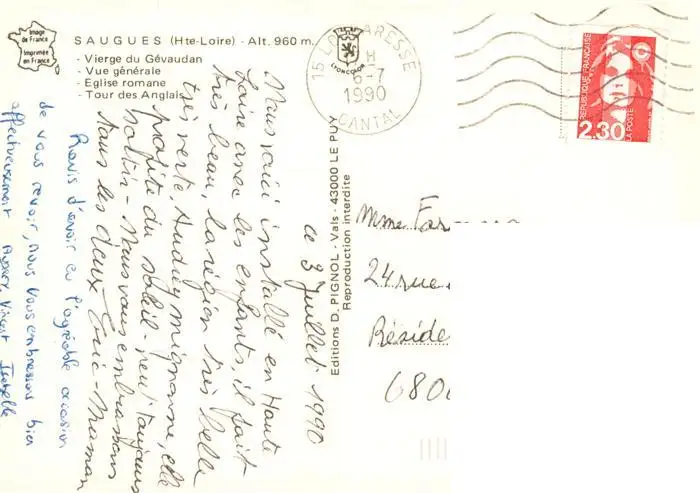 Image
de France
Imprimée
en France
SAUGUES (Hte-Loire) - Alt. 960 m.
- Vierge du Gévaudan
- Vue générale
- Eglise romane
- Tour des Anglais
LYONCOLOR
15 H
6-7
1990
CANTAL
REPUBLIQUE FRANÇAISE
2,30
LA POSTE
Editions D. PIGNOL - Vals - 43000 LE PUY
Reproduction interdite
ce 3 Juillet 1990
Nous voici installé en Haute
Loire avec les enfants, il fait
très beau, la région très belle
très verte, Audrey mignonne, elle
profite du soleil - veut toujours
- Nous vous embrassons
tous les deux Eric - Maman
Ravis d'avoir eu l'agréable occasion
de vous revoir, nous vous embrassons bien
affectueusement Vincent Isabelle
Mme Far
24 rue
Réside
680